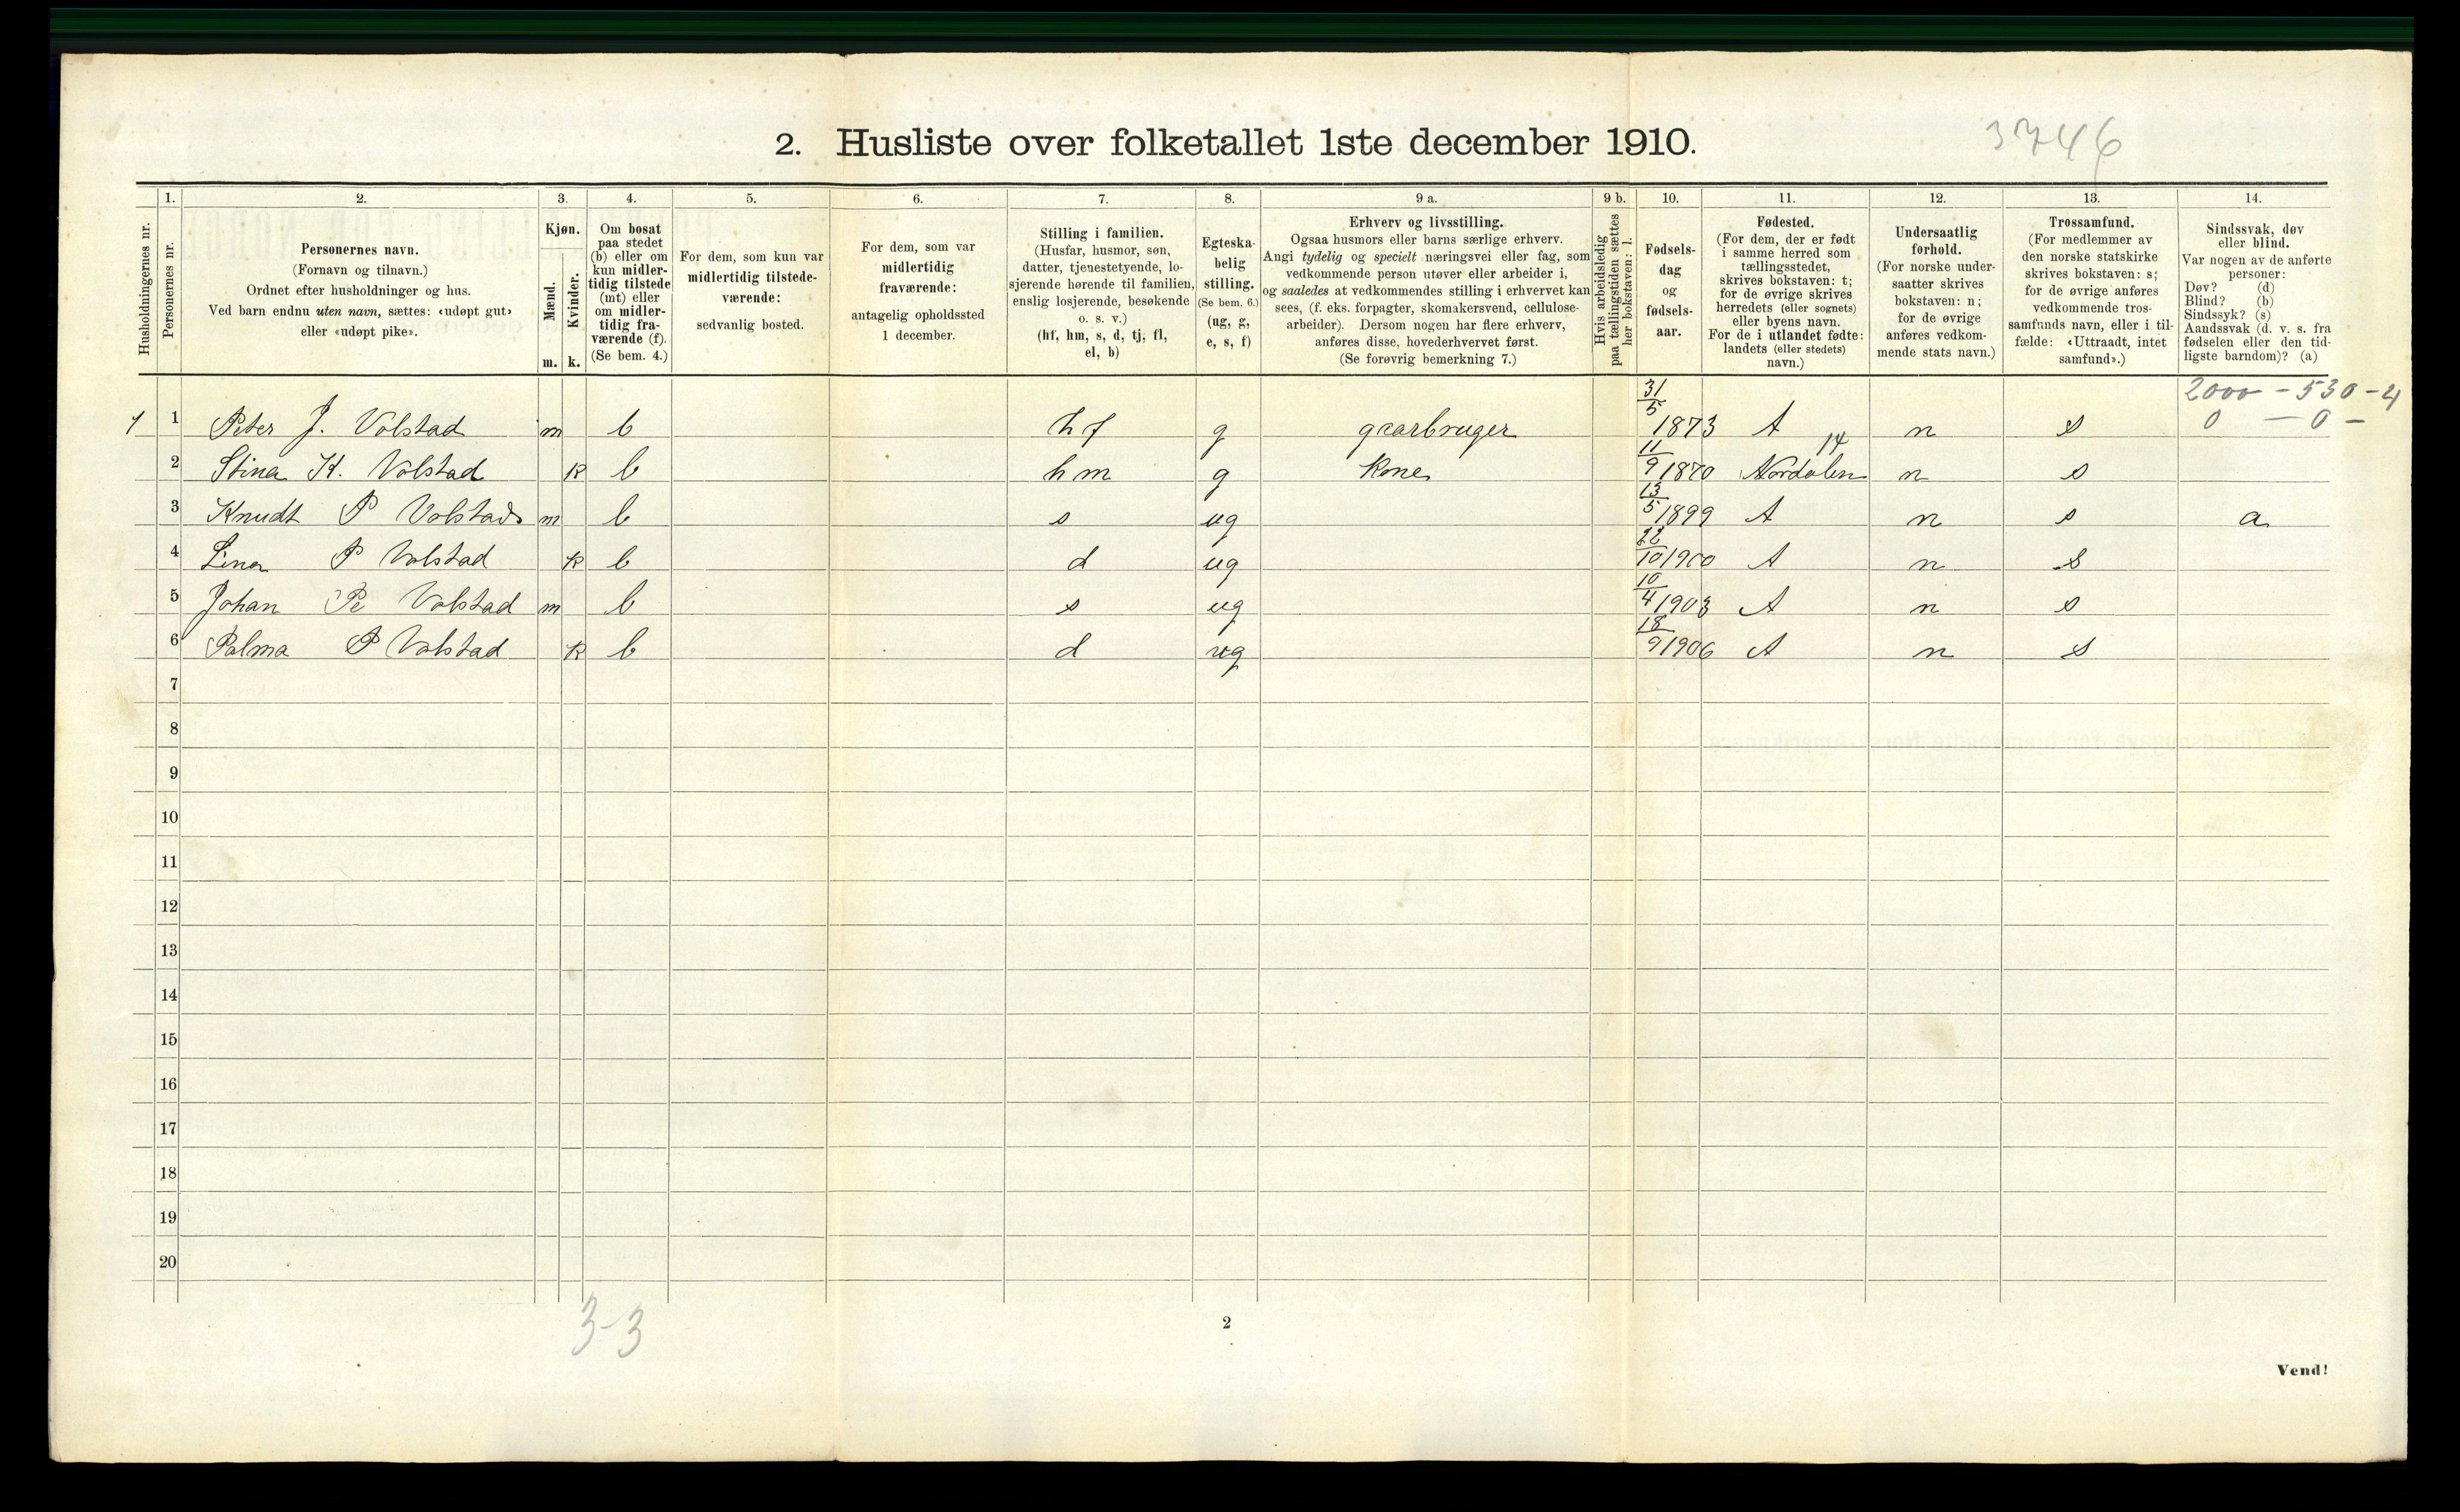 2. Husliste over folketallet 1ste december 1910.
3746
Husholdningernes nr.
1.
Personernes nr.
2.
Personernes navn.
(Fornavn og tilnavn.)
Ordnet efter husholdninger og hus.
Ved barn endnu uten navn, sættes: «udøpt gut»
eller «udøpt pike».
3.
Kjøn.
Mænd.
Kvinder.
m. k.
4.
Om bosat
paa stedet
(b) eller om
kun midler-
tidig tilstede
(mt) eller
om midler-
tidig fra-
værende (f).
(Se bem. 4.)
5.
For dem, som kun var
midlertidig tilstede-
værende:
sedvanlig bosted.
6.
For dem, som var
midlertidig
fraværende:
antagelig opholdssted
1 december.
7.
Stilling i familien.
(Husfar, husmor, søn,
datter, tjenestetyende, lo-
sjerende hørende til familien,
enslig losjerende, besøkende
o. s. v.)
(hf, hm, s, d, tj, fl,
el, b)
8.
Egteska-
belig
stilling.
(Se bem. 6.)
(ug, g,
e, s, f)
9 a.
Erhverv og livsstilling.
Ogsaa husmors eller barns særlige erhverv.
Angi tydelig og specielt næringsvei eller fag, som
vedkommende person utøver eller arbeider i,
og saaledes at vedkommendes stilling i erhvervet kan
sees, (f. eks. forpagter, skomakersvend, cellulose-
arbeider). Dersom nogen har flere erhverv,
anføres disse, hovederhvervet først.
(Se forøvrig bemerkning 7.)
9 b.
Hvis arbeidsledig
paa tællingstiden sættes
her bokstaven: l.
10.
Fødsels-
dag
og
fødsels-
aar.
11.
Fødested.
(For dem, der er født
i samme herred som
tællingsstedet,
skrives bokstaven: t;
for de øvrige skrives
herredets (eller sognets)
eller byens navn.
For de i utlandet fødte:
landets (eller stedets)
navn.)
12.
Undersaatlig
forhold.
(For norske under-
saatter skrives
bokstaven: n;
for de øvrige
anføres vedkom-
mende stats navn.)
13.
Trossamfund.
(For medlemmer av
den norske statskirke
skrives bokstaven: s;
for de øvrige anføres
vedkommende tros-
samfunds navn, eller i til-
fælde: «Uttraadt, intet
samfund».)
14.
Sindssvak, døv
eller blind.
Var nogen av de anførte
personer:
Døv? (d)
Blind? (b)
Sindssyk? (s)
Aandssvak (d. v. s. fra
fødselen eller den tid-
ligste barndom)? (a)
2000 - 530 - 4
0 - 0 -
1 1 Peter J. Volstad m b hf g gaarbruger 31/5 1873 t n s
2 Stina K. Volstad k b hm g Kone 11/9 1870 Nordalen 14 n s
3 Knudt P Volstad m b s ug 13/5 1899 t n s a
4 Lina P Volstad k b d ug 22/10 1900 t n s
5 Johan Pe Volstad m b s ug 10/4 1903 t n s
6 Palma P Volstad k b d ug 18/9 1906 t n s
7
8
9
10
11
12
13
14
15
16
17
18
19
20
3-3
2
Vend!